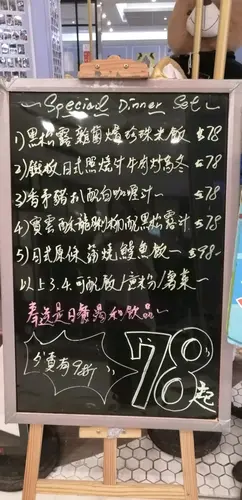 Special Dinner Set
1) 黑松露雜菌爆珍珠米飯 $78
2) 鐵板日式照燒汁牛肉炒烏冬 $78
3) 香芋豬扒配白咖喱汁 $78
4) 龍脷柳配黑松露汁 $78
5) 日式原條蒲燒鰻魚飯 $98
以上3.4.可配飯/意粉/薯菜
奉送是日餐湯和飲品
外賣有9折
78起